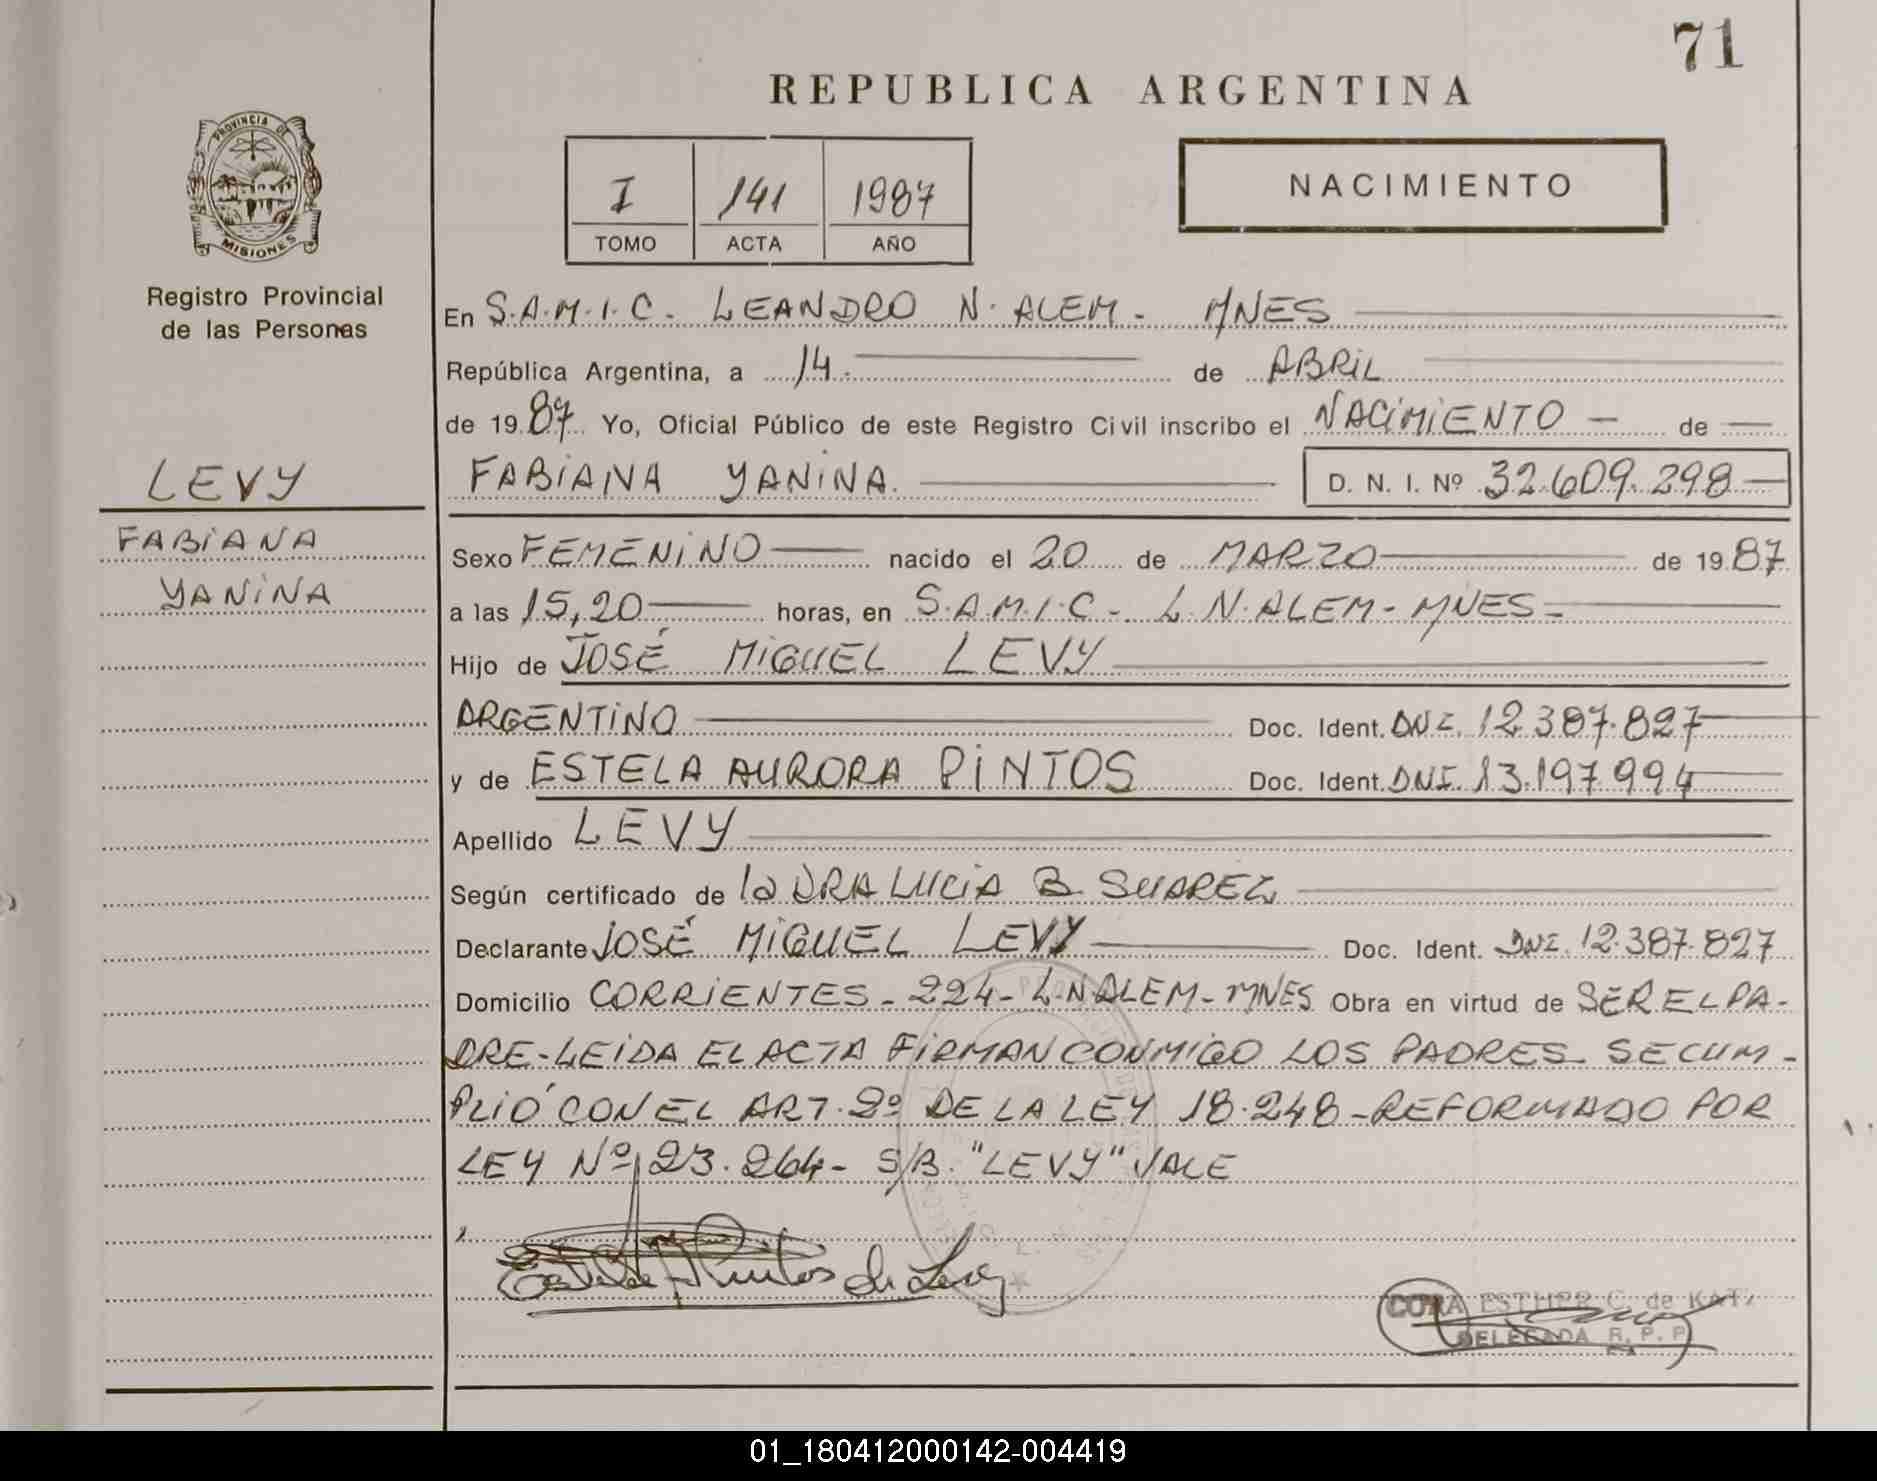 71
REPUBLICA ARGENTINA
PROVINCIA DE
MISIONES
Registro Provincial
de las Personas
I 141 1987
TOMO ACTA AÑO
NACIMIENTO
En S.A.M.I.C. LEANDRO N. ALEM - MNES
República Argentina, a 14 de ABRIL
de 1987 Yo, Oficial Público de este Registro Civil inscribo el NACIMIENTO - de
FABIANA YANINA. D. N. I. Nº 32.609.298
LEVY
FABIANA
YANINA
Sexo FEMENINO nacido el 20 de MARZO de 1987
a las 15,20 horas, en S.A.M.I.C - L.N. ALEM - MNES -
Hijo de JOSÉ MIGUEL LEVY
ARGENTINO Doc. Ident. DNI. 12.387.827
y de ESTELA AURORA PINTOS Doc. Ident. DNI. 13.197.994
Apellido LEVY
Según certificado de la DRA LUCIA B. SUAREZ
Declarante JOSÉ MIGUEL LEVY Doc. Ident. DNI. 12.387.827
Domicilio CORRIENTES - 224 - L.N ALEM - MNES Obra en virtud de SER EL PA-
DRE - LEIDA EL ACTA FIRMAN CONMIGO LOS PADRES. SE CUM-
PLIÓ CON EL ART. 2º DE LA LEY 18.248 - REFORMADO POR
LEY Nº 23.264 - S/B. "LEVY" VALE
Pintos de Levy
CORA ESTHER C. de KATZ
DELEGADA R. P. P.
01_180412000142-004419